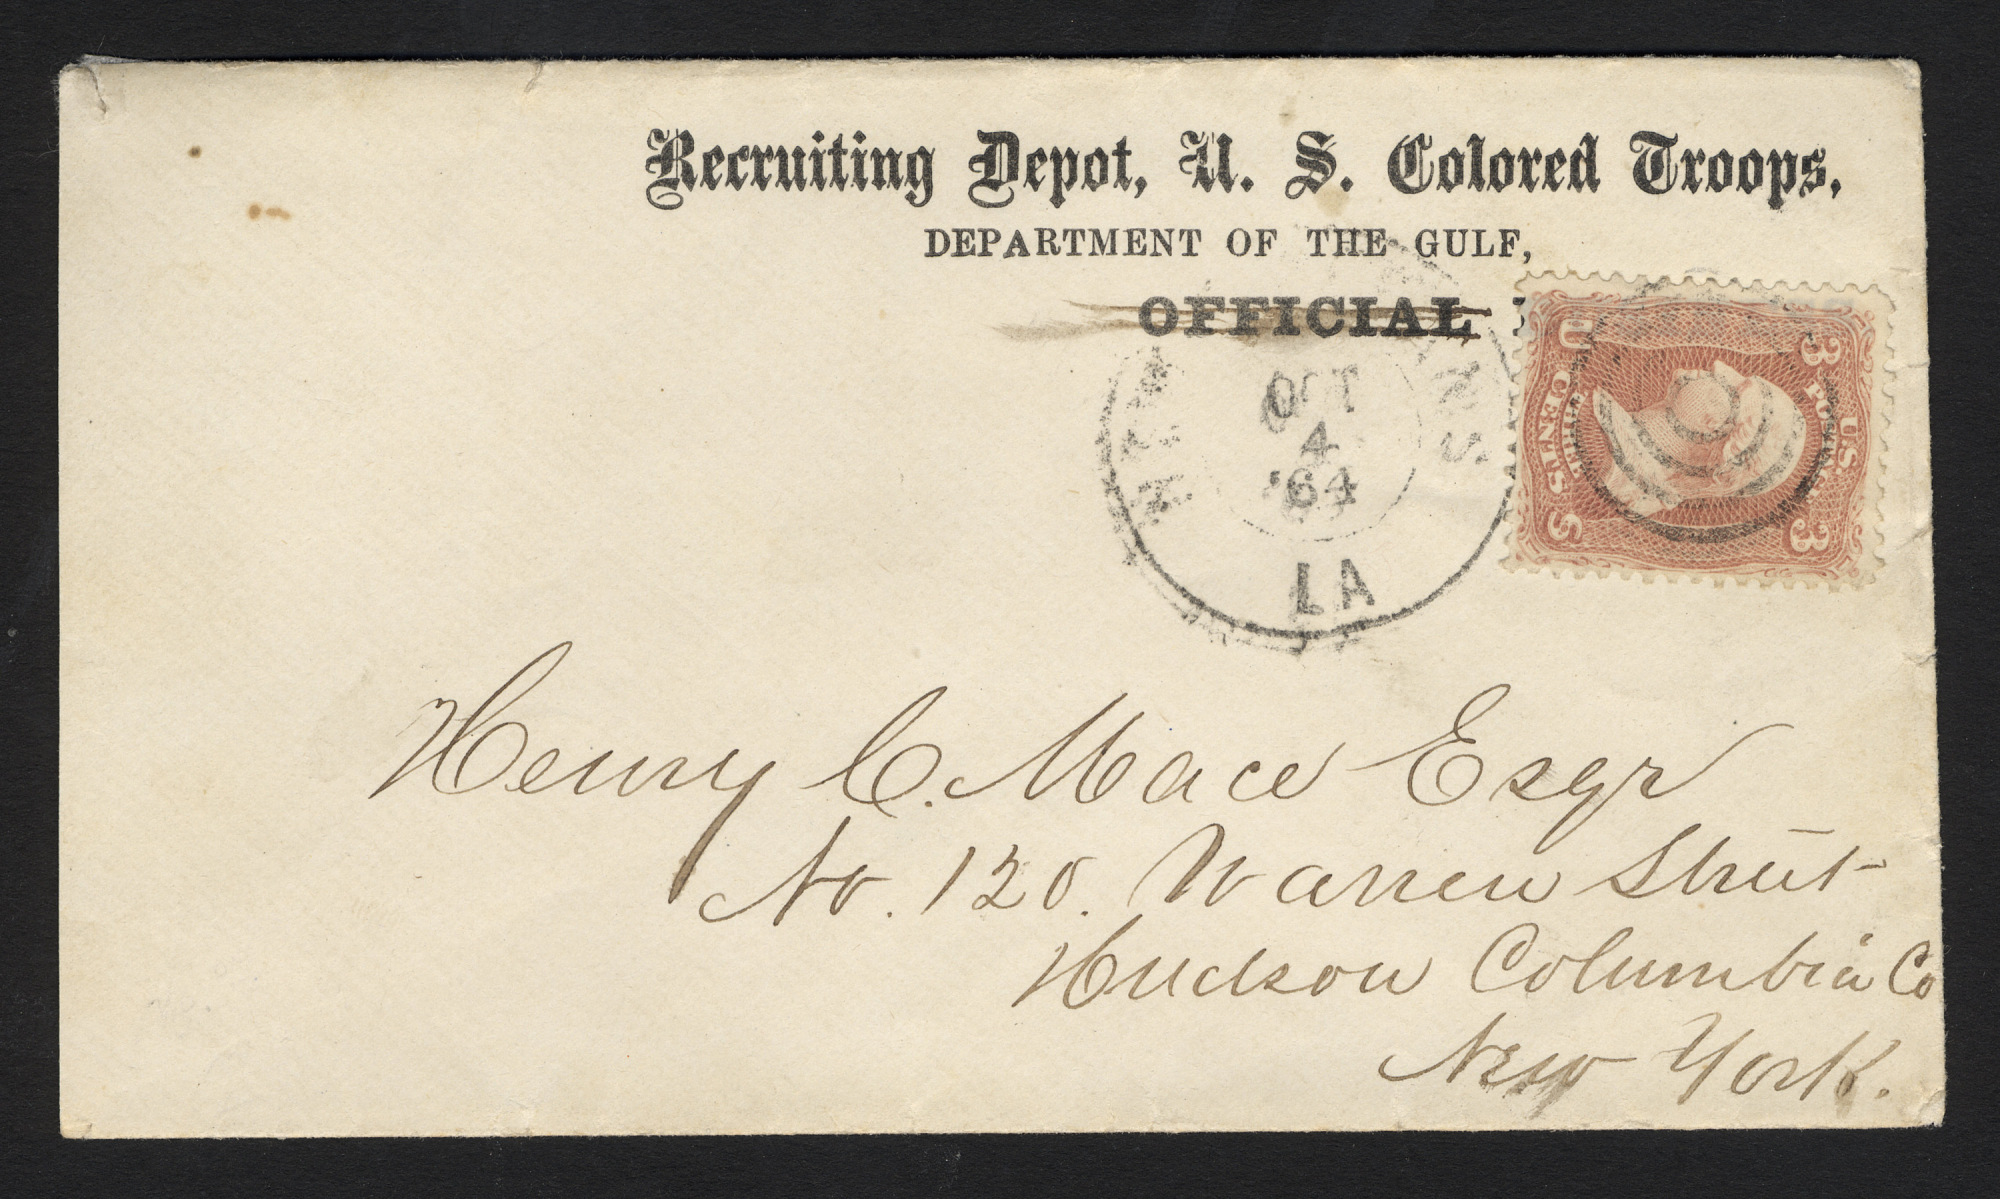 Recruiting Depot, U. S. Colored Troops,
DEPARTMENT OF THE GULF,
OFFICIAL
OCT
4
'64
LA
U.S. POST
3 3
THREE
CENTS
U S
Henry C. Mace Esqr
No. 120. Warren Street
Hudson Columbia Co
New York.